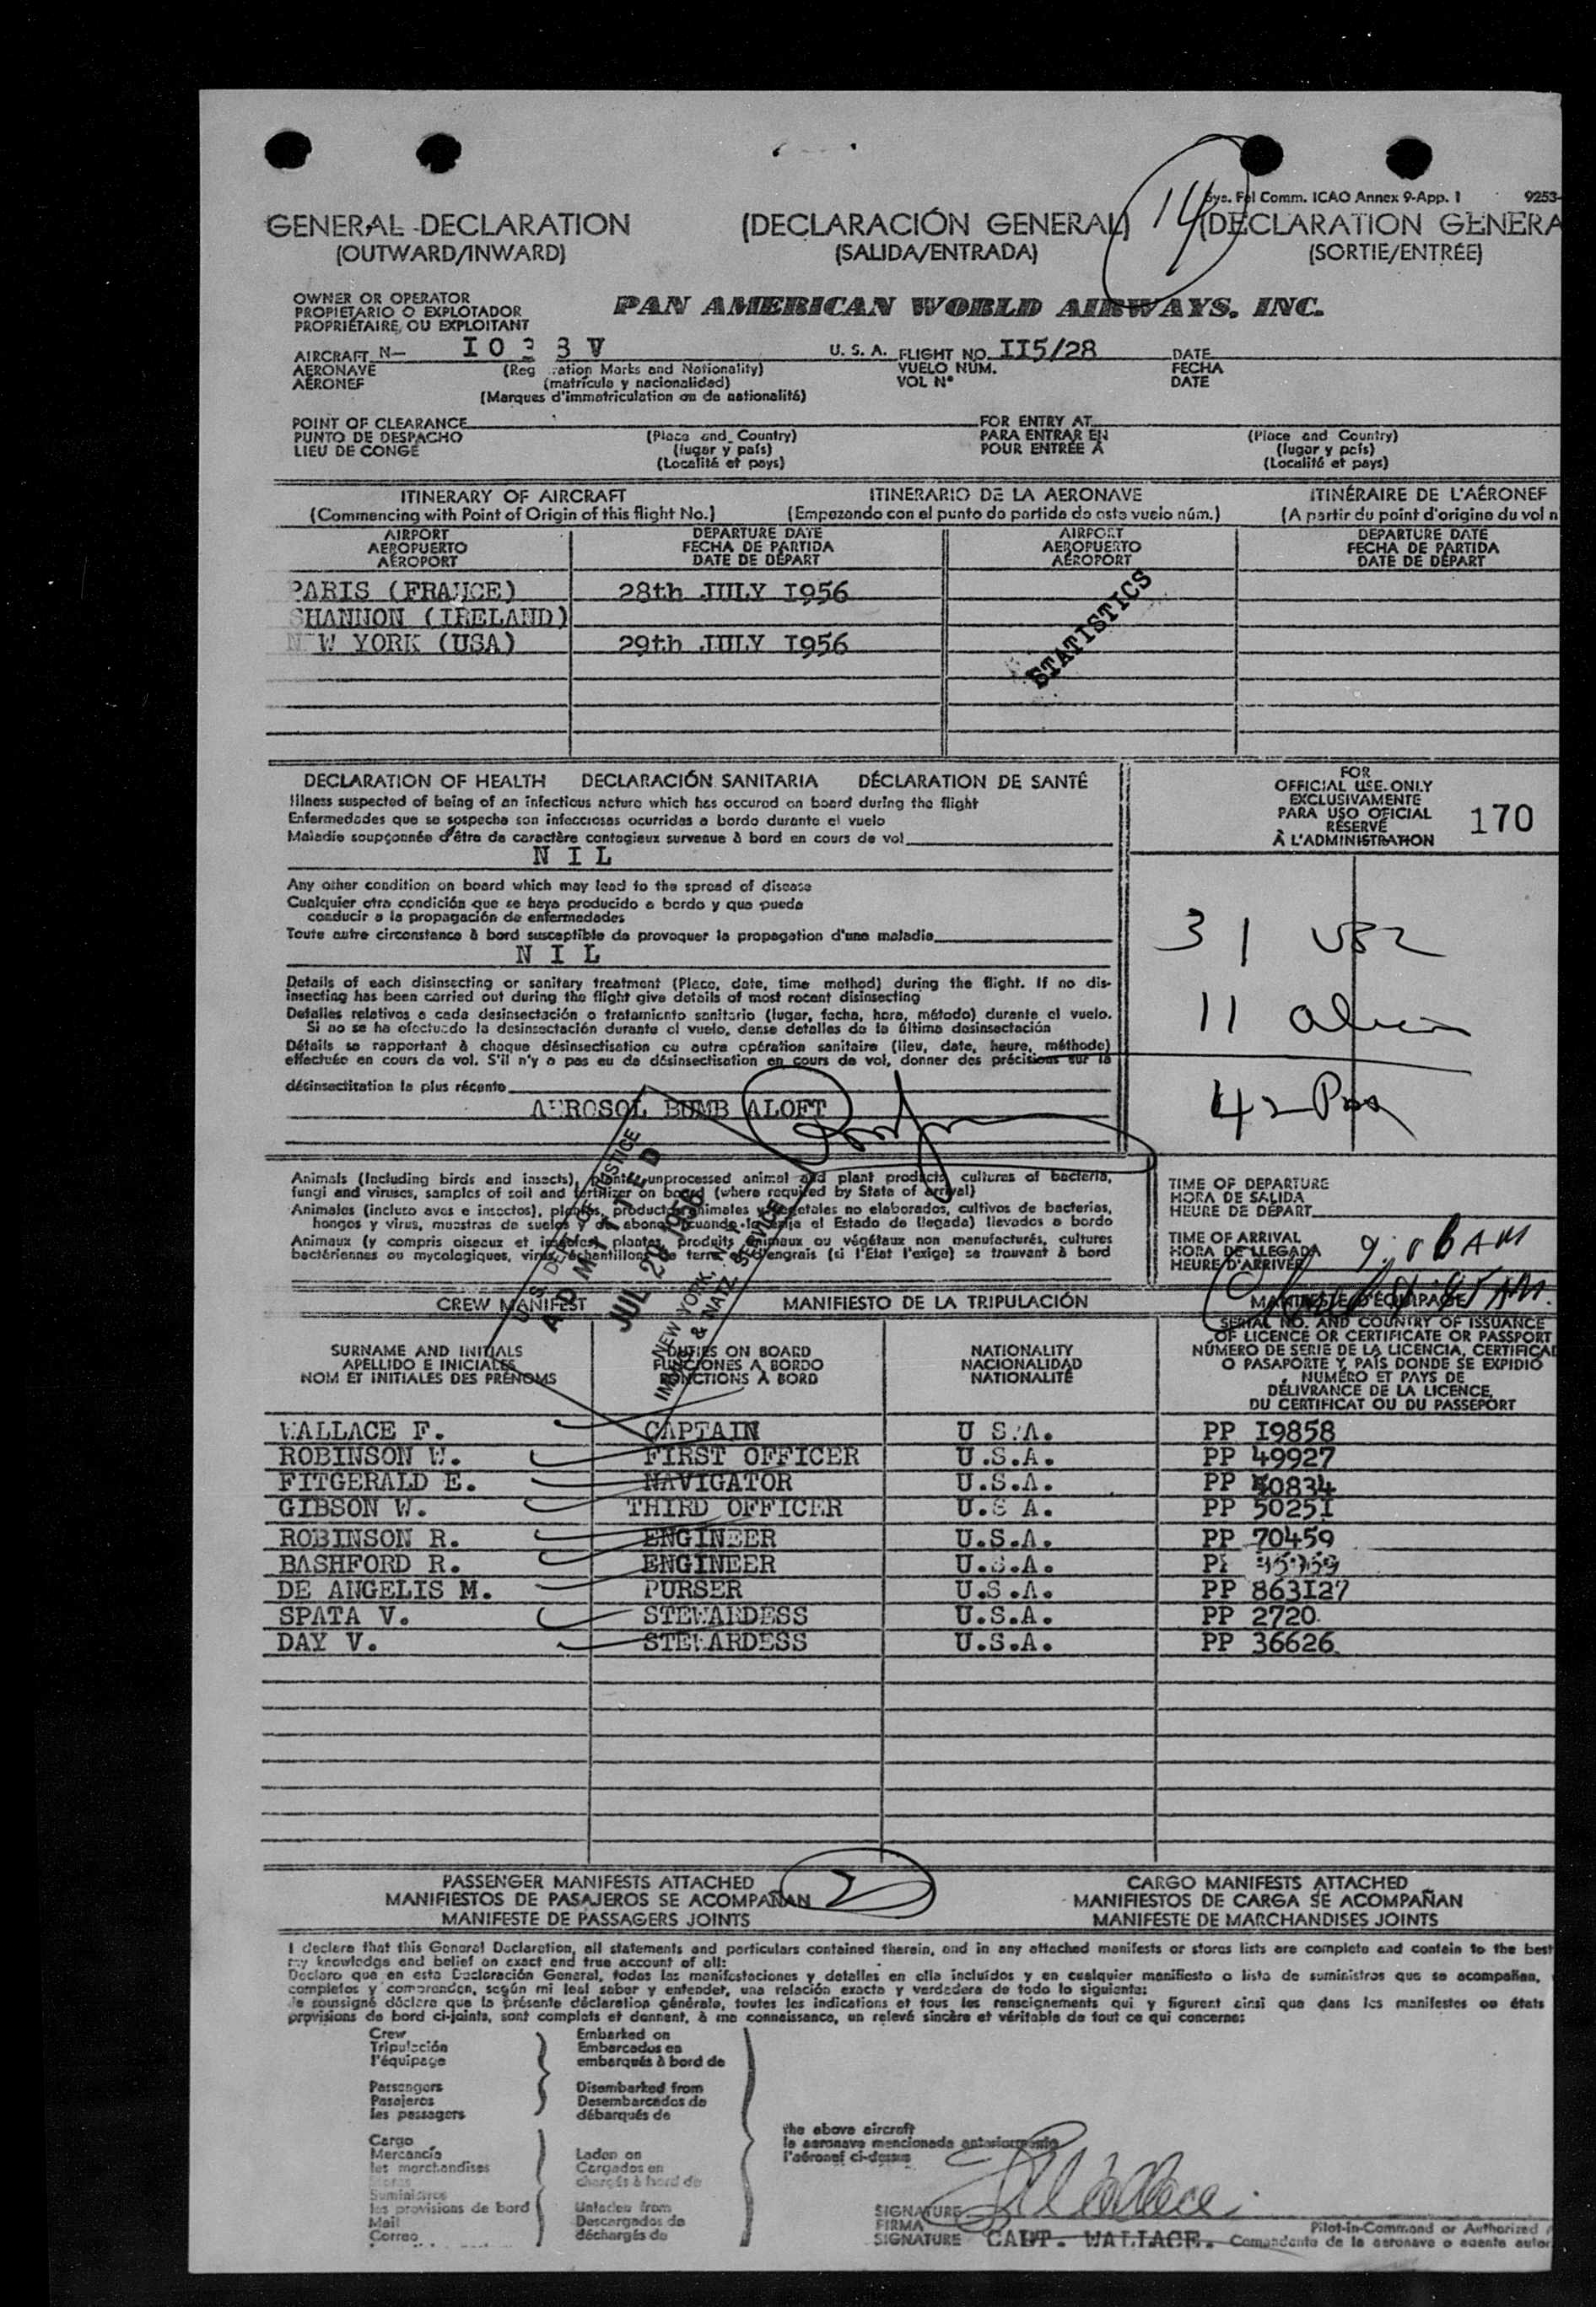 14
Sys. Fel Comm. ICAO Annex 9-App. 1 9253-
GENERAL DECLARATION (DECLARACIÓN GENERAL) (DECLARATION GENERA
(OUTWARD/INWARD) (SALIDA/ENTRADA) (SORTIE/ENTRÉE)
OWNER OR OPERATOR
PROPIETARIO O EXPLOTADOR
PROPRIÉTAIRE, OU EXPLOITANT
PAN AMERICAN WORLD AIRWAYS, INC.
AIRCRAFT N— U. S. A. FLIGHT NO. II5/28 DATE
AERONAVE (Reg ration Marks and Nationality) VUELO NÚM. FECHA
AÉRONEF (matrícula y nacionalidad) VOL Nº DATE
(Marques d'immatriculation ou de nationalité)
POINT OF CLEARANCE FOR ENTRY AT
PUNTO DE DESPACHO (Place and Country) PARA ENTRAR EN (Place and Country)
LIEU DE CONGÉ (lugar y país) POUR ENTRÉE À (lugar y país)
(Localité et pays) (Localité et pays)
ITINERARY OF AIRCRAFT ITINERARIO DE LA AERONAVE ITINÉRAIRE DE L'AÉRONEF
(Commencing with Point of Origin of this flight No.) (Empezando con el punto de partida de este vuelo núm.) (A partir du point d'origine du vol n
AIRPORT DEPARTURE DATE AIRPORT DEPARTURE DATE
AEROPUERTO FECHA DE PARTIDA AEROPUERTO FECHA DE PARTIDA
AÉROPORT DATE DE DÉPART AÉROPORT DATE DE DÉPART
PARIS (FRANCE) 28th JULY I956
SHANNON (IRELAND)
NEW YORK (USA) 29th JULY I956
STATISTICS
DECLARATION OF HEALTH DECLARACIÓN SANITARIA DÉCLARATION DE SANTÉ
Illness suspected of being of an infectious nature which has occured on board during the flight
Enfermedades que se sospecha son infecciosas ocurridas a bordo durante el vuelo
Maladie soupçonnée d'être de caractère contagieux survenue à bord en cours de vol
N I L
FOR
OFFICIAL USE ONLY
EXCLUSIVAMENTE
PARA USO OFICIAL
RÉSERVÉ
À L'ADMINISTRATION
170
Any other condition on board which may lead to the spread of disease
Cualquier otra condición que se haya producido a bordo y que pueda
conducir a la propagación de enfermedades
Toute autre circonstance à bord susceptible de provoquer la propagation d'une maladie
N I L
31
11
42
Details of each disinsecting or sanitary treatment (Place, date, time method) during the flight. If no dis-
insecting has been carried out during the flight give details of most recent disinsecting
Detalles relativos a cada desinsectación o tratamiento sanitario (lugar, fecha, hora, método) durante el vuelo.
Si no se ha efectuado la desinsectación durante el vuelo, dense detalles de la última desinsectación
Détails se rapportant à chaque désinsectisation ou autre opération sanitaire (lieu, date, heure, méthode)
effectuée en cours de vol. S'il n'y a pas eu de désinsectisation en cours de vol, donner des précisions sur la
désinsectitation la plus récente
AEROSOL BUMB ALOFT
Animals (Including birds and insects), plants, unprocessed animal and plant products cultures of bacteria,
fungi and viruses, samples of soil and fertilizer on board (where required by State of arrival)
Animales (incluso aves e insectos), plantas, productos animales y vegetales no elaborados, cultivos de bacterias,
hongos y virus, muestras de suelos y de abono (cuando lo exija el Estado de llegada) llevados a bordo
Animaux (y compris oiseaux et insectes) plantes, produits animaux ou végétaux non manufacturés, cultures
bactériennes ou mycologiques, virus, échantillons de terre et d'engrais (si l'Etat l'exige) se trouvant à bord
TIME OF DEPARTURE
HORA DE SALIDA
HEURE DE DÉPART
TIME OF ARRIVAL
HORA DE LLEGADA
HEURE D'ARRIVÉE
U. S. DEPT. JUSTICE
ADMITTED
JUL 29 1956
NEW YORK, N. Y.
IMMIG. & NATZ. SERVICE
CREW MANIFEST MANIFIESTO DE LA TRIPULACIÓN MANIFESTE D'ÉQUIPAGE
SURNAME AND INITIALS DUTIES ON BOARD NATIONALITY SERIAL NO. AND COUNTRY OF ISSUANCE
APELLIDO E INICIALES FUNCIONES A BORDO NACIONALIDAD OF LICENCE OR CERTIFICATE OR PASSPORT
NOM ET INITIALES DES PRÉNOMS FONCTIONS À BORD NATIONALITÉ NÚMERO DE SERIE DE LA LICENCIA, CERTIFICAD
O PASAPORTE Y PAÍS DONDE SE EXPIDIÓ
NUMÉRO ET PAYS DE
DÉLIVRANCE DE LA LICENCE,
DU CERTIFICAT OU DU PASSEPORT
WALLACE F. CAPTAIN U S.A. PP I9858
ROBINSON W. FIRST OFFICER U.S.A. PP 49927
FITGERALD E. NAVIGATOR U.S.A. PP
GIBSON W. THIRD OFFICER U.S A. PP 5025I
ROBINSON R. ENGINEER U.S.A. PP 70459
BASHFORD R. ENGINEER U.S.A. PP
DE ANGELIS M. PURSER U.S.A. PP 863I27
SPATA V. STEWARDESS U.S.A. PP 2720
DAY V. STEWARDESS U.S.A. PP 36626
PASSENGER MANIFESTS ATTACHED CARGO MANIFESTS ATTACHED
MANIFIESTOS DE PASAJEROS SE ACOMPAÑAN 2 MANIFIESTOS DE CARGA SE ACOMPAÑAN
MANIFESTE DE PASSAGERS JOINTS MANIFESTE DE MARCHANDISES JOINTS
I declare that this General Declaration, all statements and particulars contained therein, and in any attached manifests or stores lists are complete and contain to the best
my knowledge and belief an exact and true account of all:
Declaro que en esta Declaración General, todas las manifestaciones y detalles en ella incluídos y en cualquier manifiesto o lista de suministros que se acompañan,
completos y comprenden, según mi leal saber y entender, una relación exacta y verdadera de todo lo siguiente:
Je soussigné déclare que la présente déclaration générale, toutes les indications et tous les renseignements qui y figurent ainsi que dans les manifestes ou états
provisions de bord ci-joints, sont complets et donnent, à ma connaissance, un relevé sincère et véritable de tout ce qui concerne:
Crew Embarked on
Tripulación Embarcados en
l'équipage embarqués à bord de
Passengers Disembarked from
Pasajeros Desembarcados de
les passagers débarqués de
the above aircraft
la aeronave mencionada anteriormente
l'aéronef ci-dessus
Cargo
Mercancía Laden on
les marchandises Cargados en
Stores chargés à bord de
Suministros
les provisions de bord Unladen from
Mail Descargados de
Correo déchargés de
F Wallace
SIGNATURE
FIRMA Pilot-in-Command or Authorized
SIGNATURE CAPT. WALLACE. Comandante de la aeronave o agente autor